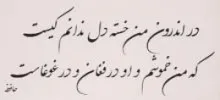 در اندرون من خسته دل ندانم کیست
که من خموشم و او در فغان و در غوغاست
حافظ